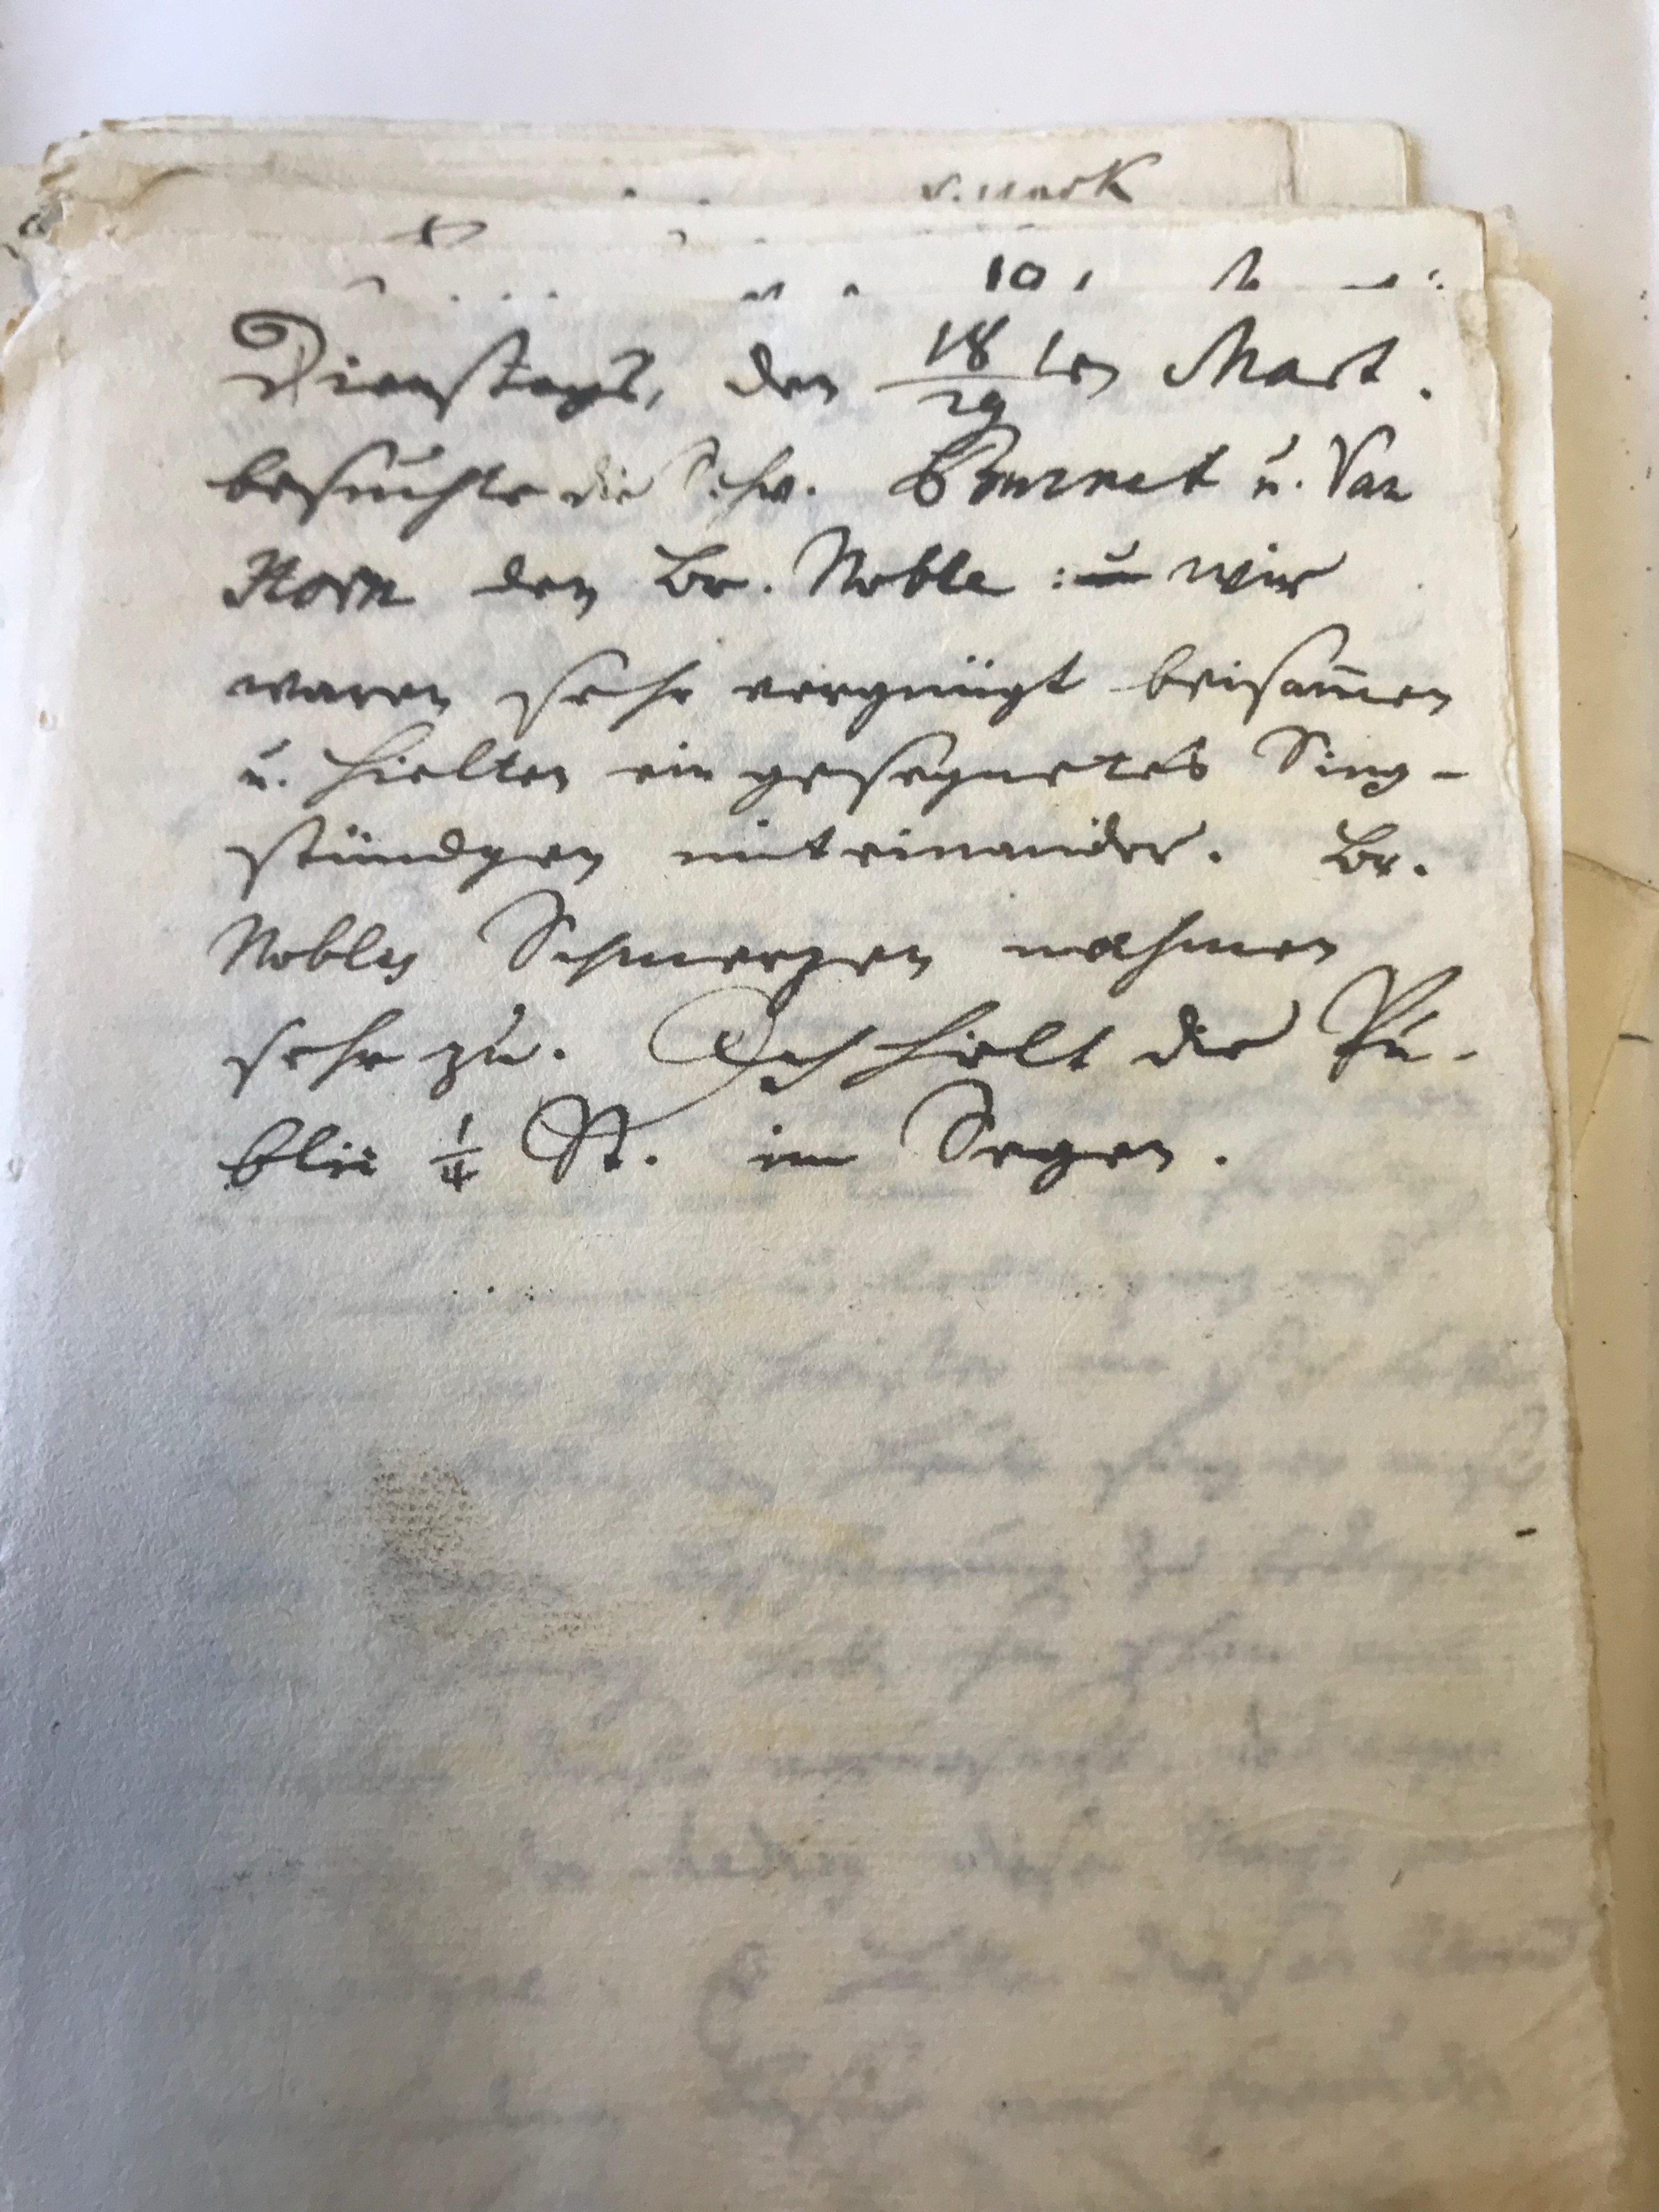 Dienstags, den 18/29 ten Mart.
besuchte die Schw. Bournet u. Van
Horn den Br. Noble : u wir
waren sehr vergnügt beisam̅en
u. hielten ein gesegnetes Sing-
stündgen miteinander. Br.
Nobles Schmerzen nahmen
sehr zu. Ich hielt die Pu-
blic ¼ St. im Segen.